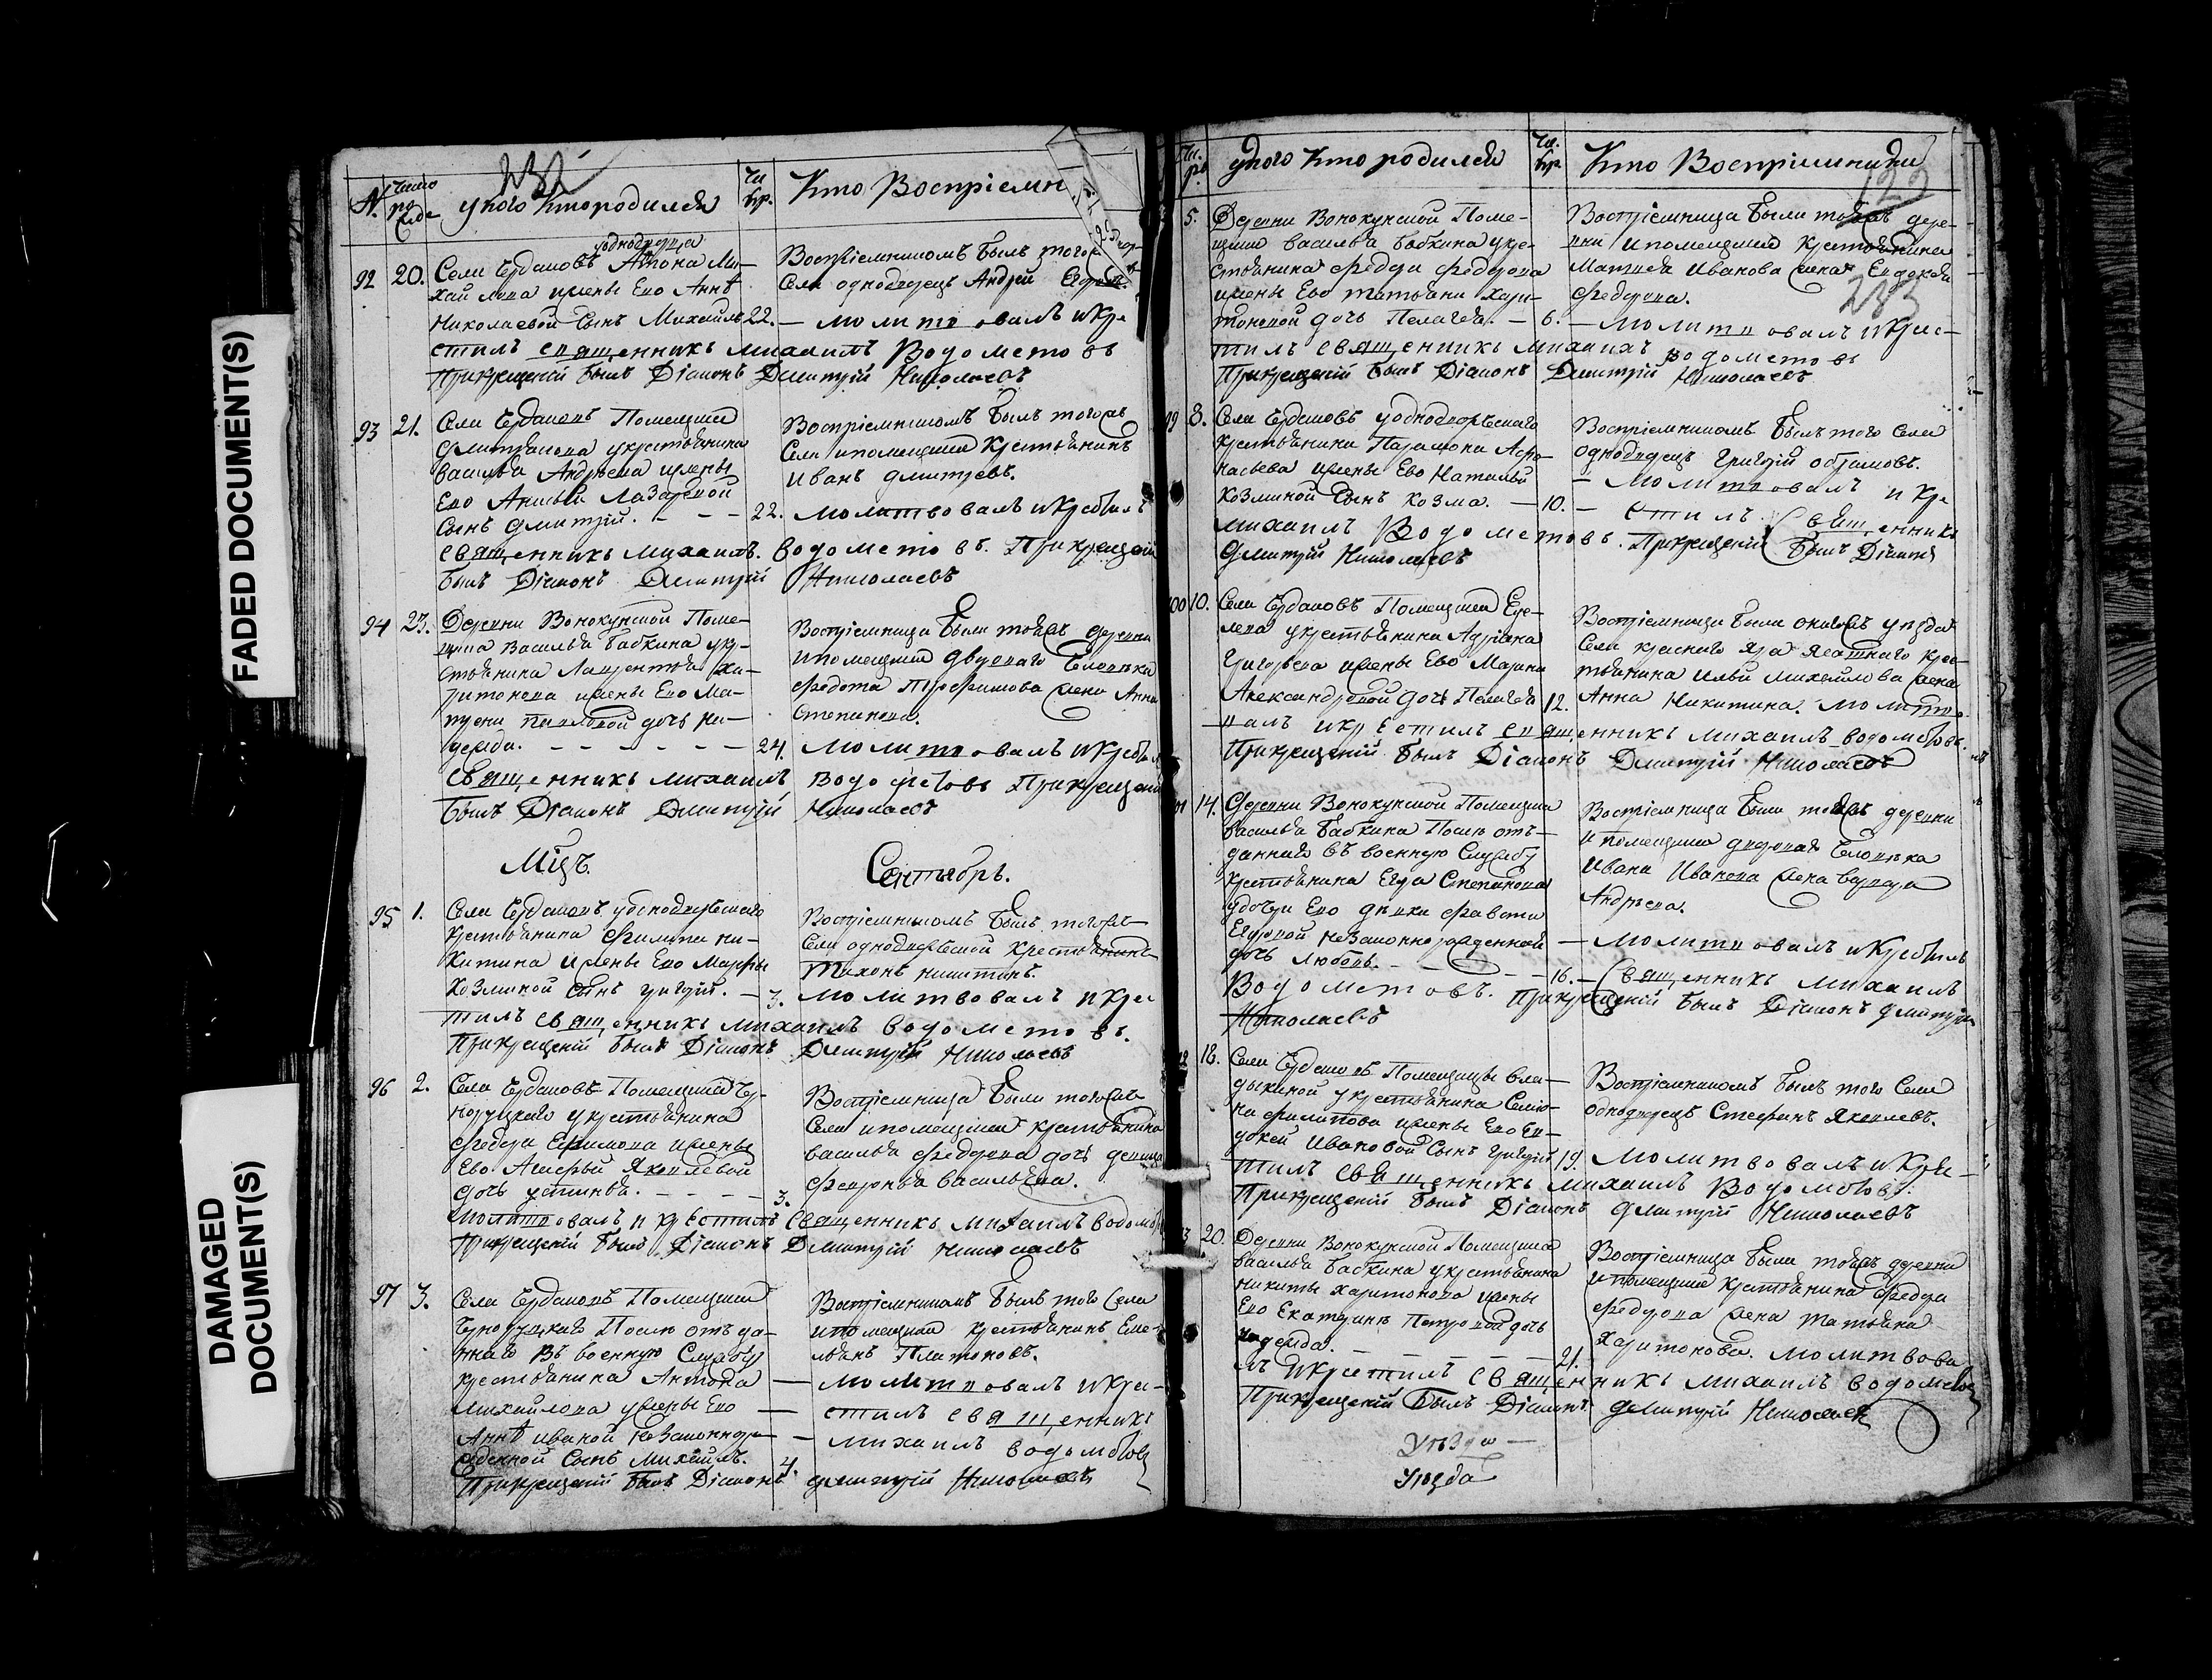 FADED DOCUMENT(S)
DAMAGED
DOCUMENT(S)
232
№. Число рожде
у кого кто родился
Чи. кр.
Кто Воспріемн
92 20.
у однодворца
Села Ердановъ Антона Ми-
хайлова и жены Ево Анны
Николаевой Сынъ Михаилъ 22.
Воспріемникомъ былъ того
Села однодворецъ Андрей
— молитвовалъ и кре
стилъ священникъ михаилъ Водометовъ
При крещеніи былъ Діаконъ Дмитрій Николаевъ
93 21.
Села Ердановъ Помещика
у крестьянина
василья Андреева и жены
Ево Лазаревой
Сынъ дмитрій. - - - 22.
Воспріемникомъ былъ тогожъ
Села и помещика крестьянинъ
иванъ дмитревъ.
молитвовалъ и крестилъ
священникъ михаилъ. водометовъ. При крещеніи
былъ Діаконъ Дмитрій Николаевъ
94 23.
Деревни Вонокунской Поме-
щика василья бабкина у кре-
стьянина Лаврентья Ха-
ритонова и жены Ево Ма-
трены Павловой дочь На-
дежда. - - - - - - 24.
Воспріемница была тойжъ деревни
и помещика двороваго Человека
федота Трофимова жена Анна
Степанова.
молитвовалъ и крестилъ
священникъ михаилъ водометовъ При крещеніи
былъ Діаконъ Дмитрій Николаевъ
Мцъ. Сентябрь.
95 1.
Села Ердановъ у однодворческаго
крестьянина филипа ни-
китина и жены Ево Марфы
Козминой Сынъ григорій. — 3.
Воспріемникомъ былъ тогожъ
Села однодворческой крестьянинъ
Тихонъ никитинъ.
молитвовалъ и крес
тилъ священникъ михаилъ водометовъ.
При крещеніи былъ Діаконъ Дмитрій Николаевъ
96 2.
Села Ердановъ Помещика Чер-
норуцкаго у крестьянина
федора Ефимова и жены
Ево Яковлевой
дочь устинья. - - - - 3.
Воспріемница была тогожъ
Села и помещика крестьянина
василья федорова дочь девица
февронья васильева.
молитвовалъ и крестилъ священникъ михаилъ водомето
При крещеніи былъ Діаконъ Дмитрій Николаевъ
97 3.
Села Ердановъ Помещика
Черноруцкаго После отъ да-
ннаго въ военную Службу
крестьянина Антона
михайлова у жены Ево
Анны ивановой незаконноро-
жденной Сынъ михайлъ. 4.
Воспріемникомъ былъ того Села
и помещика крестьянинъ Еме-
льянъ Платоновъ.
— молитвовалъ и кре-
— стилъ священникъ
— михаилъ водометовъ
При крещеніи былъ Діаконъ дмитрій Николаевъ
Чи. р.
у кого кто родился
Чи. кр.
Кто Воспріемники
122
233
5.
Деревни Вонокунской Поме-
щика василья бабкина у кре-
стьянина федора федорова
и жены Ево татьяны хари-
тоновой дочь Пелагея. — 6.
Воспріемница была тойжъ дере-
вни и помещика крестьянина
Матвея иванова жена Евдокея
федорова.
— молитвовалъ и крес-
тилъ священникъ михаилъ водометовъ
При крещеніи былъ Діаконъ Дмитрій Николаевъ
99 8.
Села Ердановъ у однодворческаго
крестьянина Парамона Афо-
насьева и жены Ево Натальи
Козминой Сынъ козма. — 10.
Воспріемникомъ былъ того Села
однодворецъ григорій
— молитвовалъ и кре
— стилъ священникъ
михаилъ Водометовъ. При крещеніи былъ Діаконъ
дмитрій Николаевъ
100 10.
Села Ердановъ Помещика
у крестьянина Адріана
григорьева и жены Ево Марины
Александровой дочь Пелагея 12.
Воспріемница была уезда
Села краснаго яра ясашнаго крес-
тьянина ильи михайлова жена
Анна Никитина. молитво
валъ и крестилъ священникъ михаилъ водометовъ.
При крещеніи былъ Діаконъ Дмитрій Николаевъ
14.
Деревни Вонокунской Помещика
василья бабкина После отъ-
даннаго въ военную Службу
крестьянина Егора Степанова
у дочери Ево девки
Егоровой незаконнорожденная
дочь любовь. - - - - 16.
Воспріемница была тойжъ деревни
и помещика двороваго Человека
ивана иванова жена варвара
Андреева.
— молитвовалъ и крестилъ
— священникъ михаилъ
Водометовъ. При крещеніи былъ Діаконъ дмитрій
Николаевъ
18.
Села Ердановъ Помещицы Вла-
дыкиной у крестьянина Семио-
на филипова и жены Ево Ев-
докеи ивановой Сынъ григорій 19.
Воспріемникомъ былъ того Села
однодворецъ Стефанъ Яковлевъ.
молитвовалъ и крес-
тилъ священникъ михаилъ Водометовъ.
При крещеніи былъ Діаконъ дмитрій Николаевъ
20.
Деревни Вонокунской Помещика
василья бабкина у крестьянина
никиты харитонова и жены
Ево Екатерины Петровой дочь
надежда. - - - - - 21.
Воспріемница была тойжъ деревни
и помещика крестьянина федора
федорова жена татьяна
харитонова. молитвова
лъ и крестилъ священникъ михаилъ водометовъ
При крещеніи былъ Діаконъ дмитрій Николаевъ
уезда